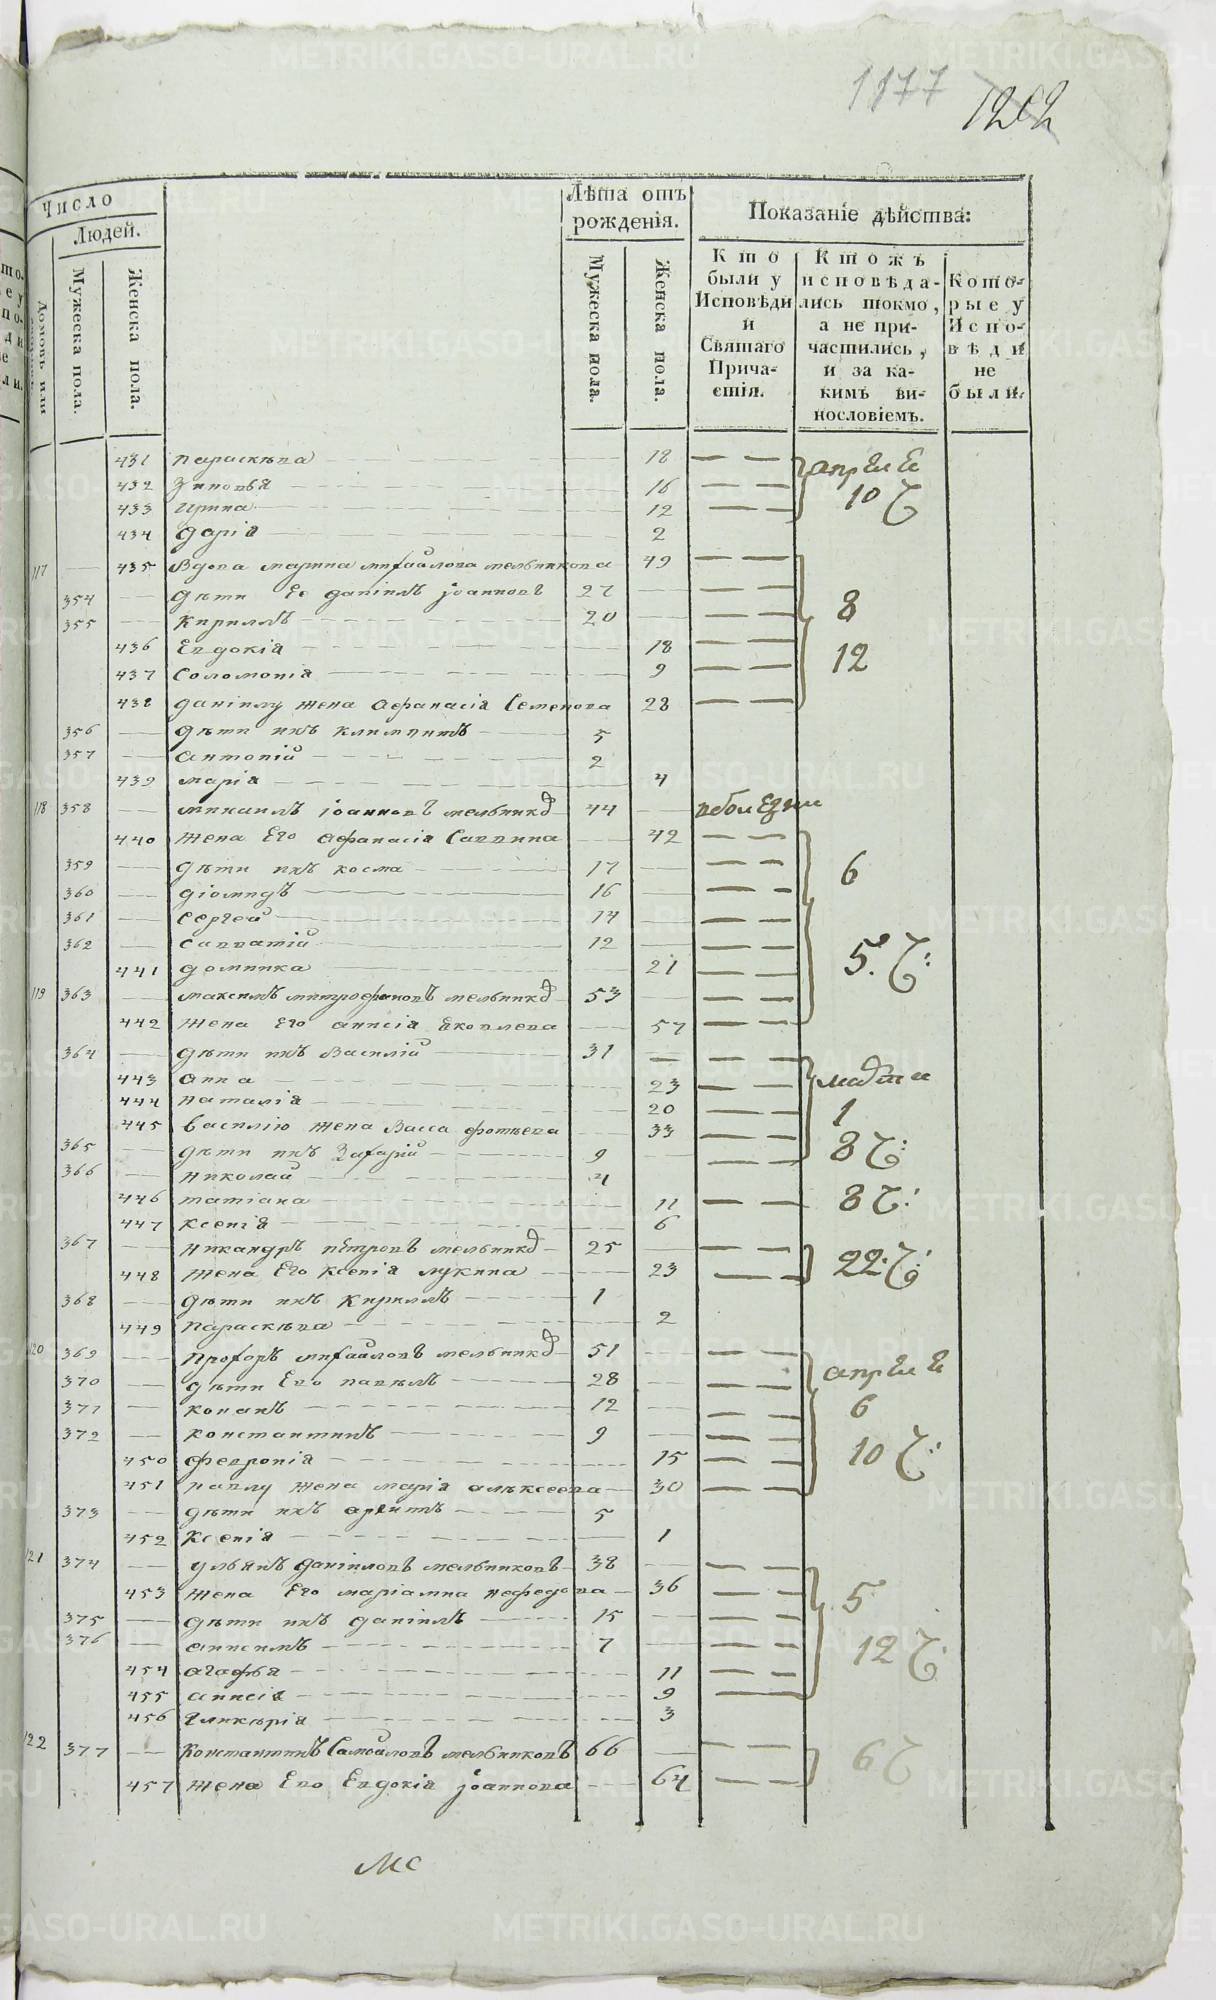 1177 1202
Число
Людей.
Домовъ или
Мужеска пола.
Женска пола.
Лѣта отъ рожденія.
Мужеска пола.
Женска пола.
Показаніе дѣйства:
Кто были у Исповѣди и Святаго Причастія.
Ктожъ исповѣдались токмо, а не причастились, и за какимъ винословіемъ.
Которые у Исповѣди не были.
431 Параскѣва 18 апреле
432 Зиновья 16 10 ч
433 Ирина 12
434 Дарія 2
117 435 Вдова Марина Михайлова Мельникова 49
354 Дѣти Ее Даніилъ Іоанновъ 27 8
355 Кириллъ 20
436 Евдокія 18 12
437 Соломонія 9
438 Даніилу жена Афанасія Семенова 28
356 Дѣти ихъ Климентъ 5
357 Антоній 2
439 Марія 4
118 358 Михаилъ Іоанновъ Мельников 44 в болезни
440 Жена Его Афанасія Саввина 42
359 Дѣти ихъ Косма 17 6
360 Діомидъ 16
361 Сергей 14
362 Савватій 12 5. ч:
441 Домника 21
119 363 Максимъ Митрофановъ Мельников 53
442 Жена Его Анисія Яковлева 57
364 Дѣти ихъ Василій 31
443 Анна 23 марта
444 Наталія 20 1
445 Василію жена Васса Фотѣева 33
365 Дѣти ихъ Захарій 9 8 ч:
366 Николай 4
446 Татіана 11 8 ч:
447 Ксенія 6
367 Никандръ Петровъ Мельников 25 22 ч:
448 Жена Его Ксенія Лукина 23
368 Дѣти ихъ Кириллъ 1
449 Параскѣва 2
120 369 Прохоръ Михайловъ Мельников 51 апреле
370 Дѣти Его Павелъ 28
371 Конанъ 12 6
372 Константинъ 9
450 Феврония 15 10 ч:
451 Павлу жена Марія Алѣксеева 30
373 Дѣти ихъ Архипъ 5
452 Ксенія 1
121 374 Ульянъ Даніиловъ Мельниковъ 38
453 Жена Его Маріамна Нефедова 36 5
375 Дѣти ихъ Даніилъ 15
376 Анисимъ 7 12 ч:
454 Агафья 11
455 Анисія 9
456 Гликѣрія 3
122 377 Константинъ Самойловъ Мельниковъ 66 6 ч
457 Жена Его Евдокія Іоаннова 64
METRIKI.GASO-URAL.RU